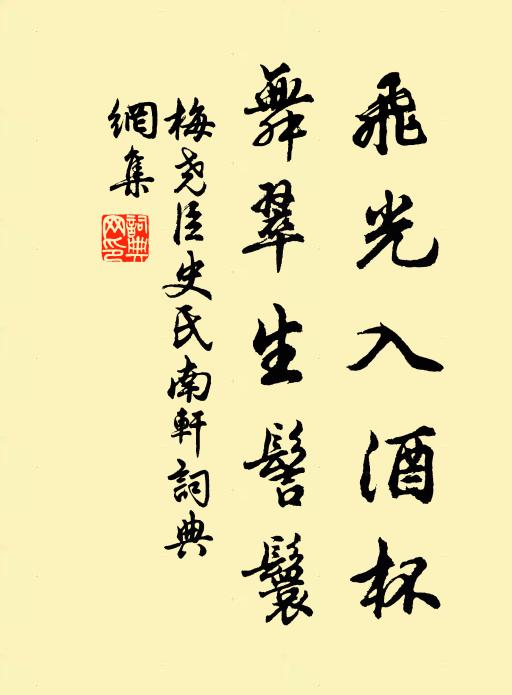 飛光入酒杯
舞翠生髻鬟
梅堯臣史氏南軒詞典
網集
詞典
网印